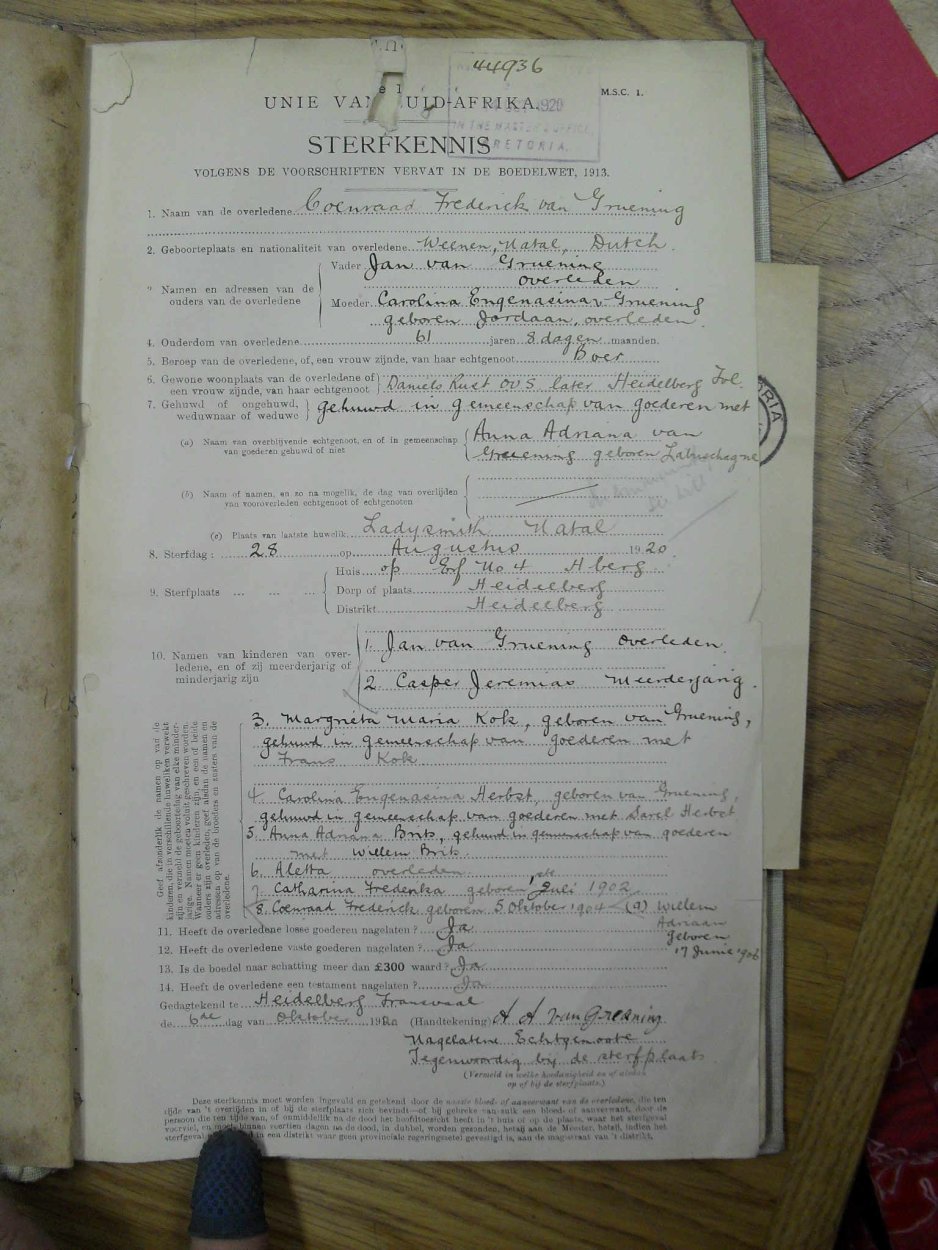 44936
M.S.C. 1.
1920
IN THE MASTER'S OFFICE
PRETORIA.
UNIE VAN ZUID-AFRIKA.
STERFKENNIS
VOLGENS DE VOORSCHRIFTEN VERVAT IN DE BOEDELWET, 1913.
1. Naam van de overledene Coenraad Frederick van Gruening
2. Geboorteplaats en nationaliteit van overledene Weenen, Natal, Dutch.
Namen en adressen van de ouders van de overledene
Vader Jan van Gruening
overleden
Moeder Carolina Engenasina v. Gruening
geboren Jordaan, overleden
4. Ouderdom van overledene 61 jaren 8 dagen maanden.
5. Beroep van de overledene, of, een vrouw zijnde, van haar echtgenoot Boer
6. Gewone woonplaats van de overledene of een vrouw zijnde, van haar echtgenoot Daniels Rust OVS later Heidelberg Tvl.
7. Gehuwd of ongehuwd, weduwnaar of weduwe gehuwd in gemeenschap van goederen met
(a) Naam van overblijvende echtgenoot, en of in gemeenschap van goederen gehuwd of niet
Anna Adriana van
Gruening geboren Labuschagne
(b) Naam of namen, en zo na mogelik, de dag van overlijden van vooroverleden echtgenoot of echtgenoten
(c) Plaats van laatste huwelik Ladysmith Natal
8. Sterfdag: 28 op Augustus 1920
9. Sterfplaats
Huis op Erf No 4 Hberg.
Dorp of plaats Heidelberg
Distrikt Heidelberg
10. Namen van kinderen van overledene, en of zij meerderjarig of minderjarig zijn
1. Jan van Gruening overleden
2. Casper Jeremias Meerderjarig.
Geef afzonderlik de namen op van de kinderen, die in verschillende huweliken verwekt zijn en vermeld de geboortedag van elke minderjarige. Namen moeten voluit geschreven worden. Wanneer er geen kinderen zijn, en een of beide ouders zijn overleden, geef alsdan de namen en adressen op van de broeders en zusters van de overledene.
3. Margrieta Maria Kok, geboren van Gruening,
gehuwd in gemeenschap van goederen met
Frans Kok
4. Carolina Engenasina Herbst, geboren van Gruening,
gehuwd in gemeenschap van goederen met Sarel Herbst
5. Anna Adriana Brits, gehuwd in gemeenschap van goederen
met Willem Brits.
6. Aletta overleden
7. Catharina Frederika geboren Juli 1902
8. Coenraad Frederick geboren 5 Oktober 1904 (9) Willem
Adriaan
geboren
17 Junie 1906
11. Heeft de overledene losse goederen nagelaten? Ja
12. Heeft de overledene vaste goederen nagelaten? Ja
13. Is de boedel naar schatting meer dan £300 waard? Ja
14. Heeft de overledene een testament nagelaten? Ja
Gedagtekend te Heidelberg Transvaal
de 6de dag van Oktober 1920 (Handtekening) A A van Greuning
Nagelatene Echtgenoote
Tegenwoordig bij de sterfplaats
(Vermeld in welke hoedanigheid en of aldan
op of bij de sterfplaats.)
Deze sterfkennis moet worden ingevuld en getekend door de naaste bloed- of aanverwant van de overledene, die ten
tijde van 't overlijden in of bij de sterfplaats zich bevindt—of bij gebreke van zulk een bloed- of aanverwant, door de
persoon die ten tijde van, of onmiddellik na de dood het hoofdtoezicht heeft in 't huis of op de plaats, waar het sterfgeval
voorviel, en moet binnen veertien dagen na de dood, in dubbel, worden gezonden, hetzij aan de Meester, hetzij, indien het
sterfgeval in een distrikt waar geen provinciale zegeringzetel gevestigd is, aan de magistraat van 't distrikt.